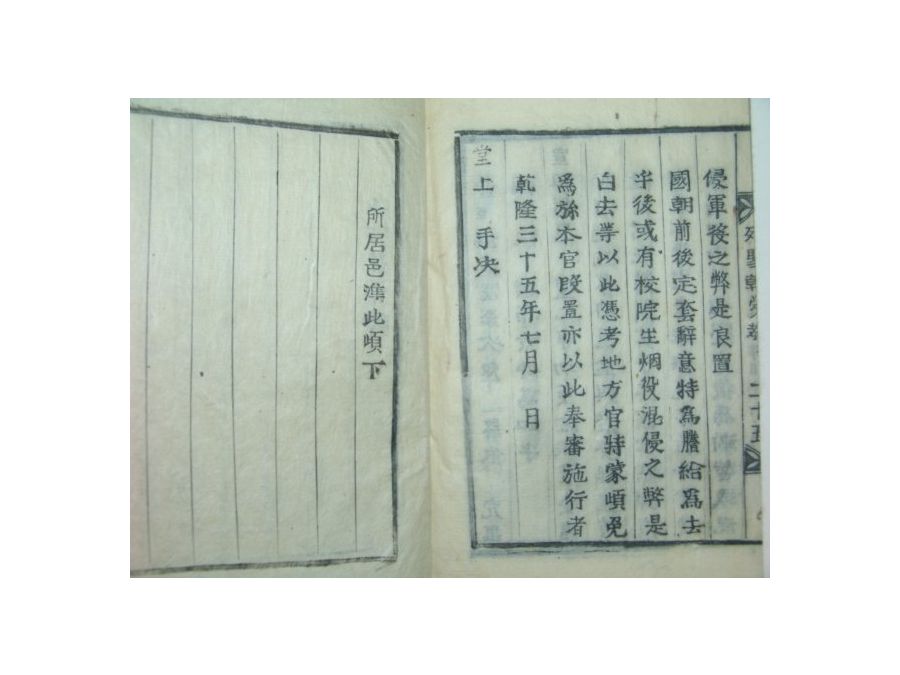 侵軍後之弊是良置
國朝前後定套辭意特爲謄給爲去
乎後或有校院生烟役混侵之弊是
白去等以此憑考地方官特蒙頉免
爲旀本官段置亦以此奉審施行者
乾隆三十五年七月 日
堂上手决
所居邑準此頉下
二十五